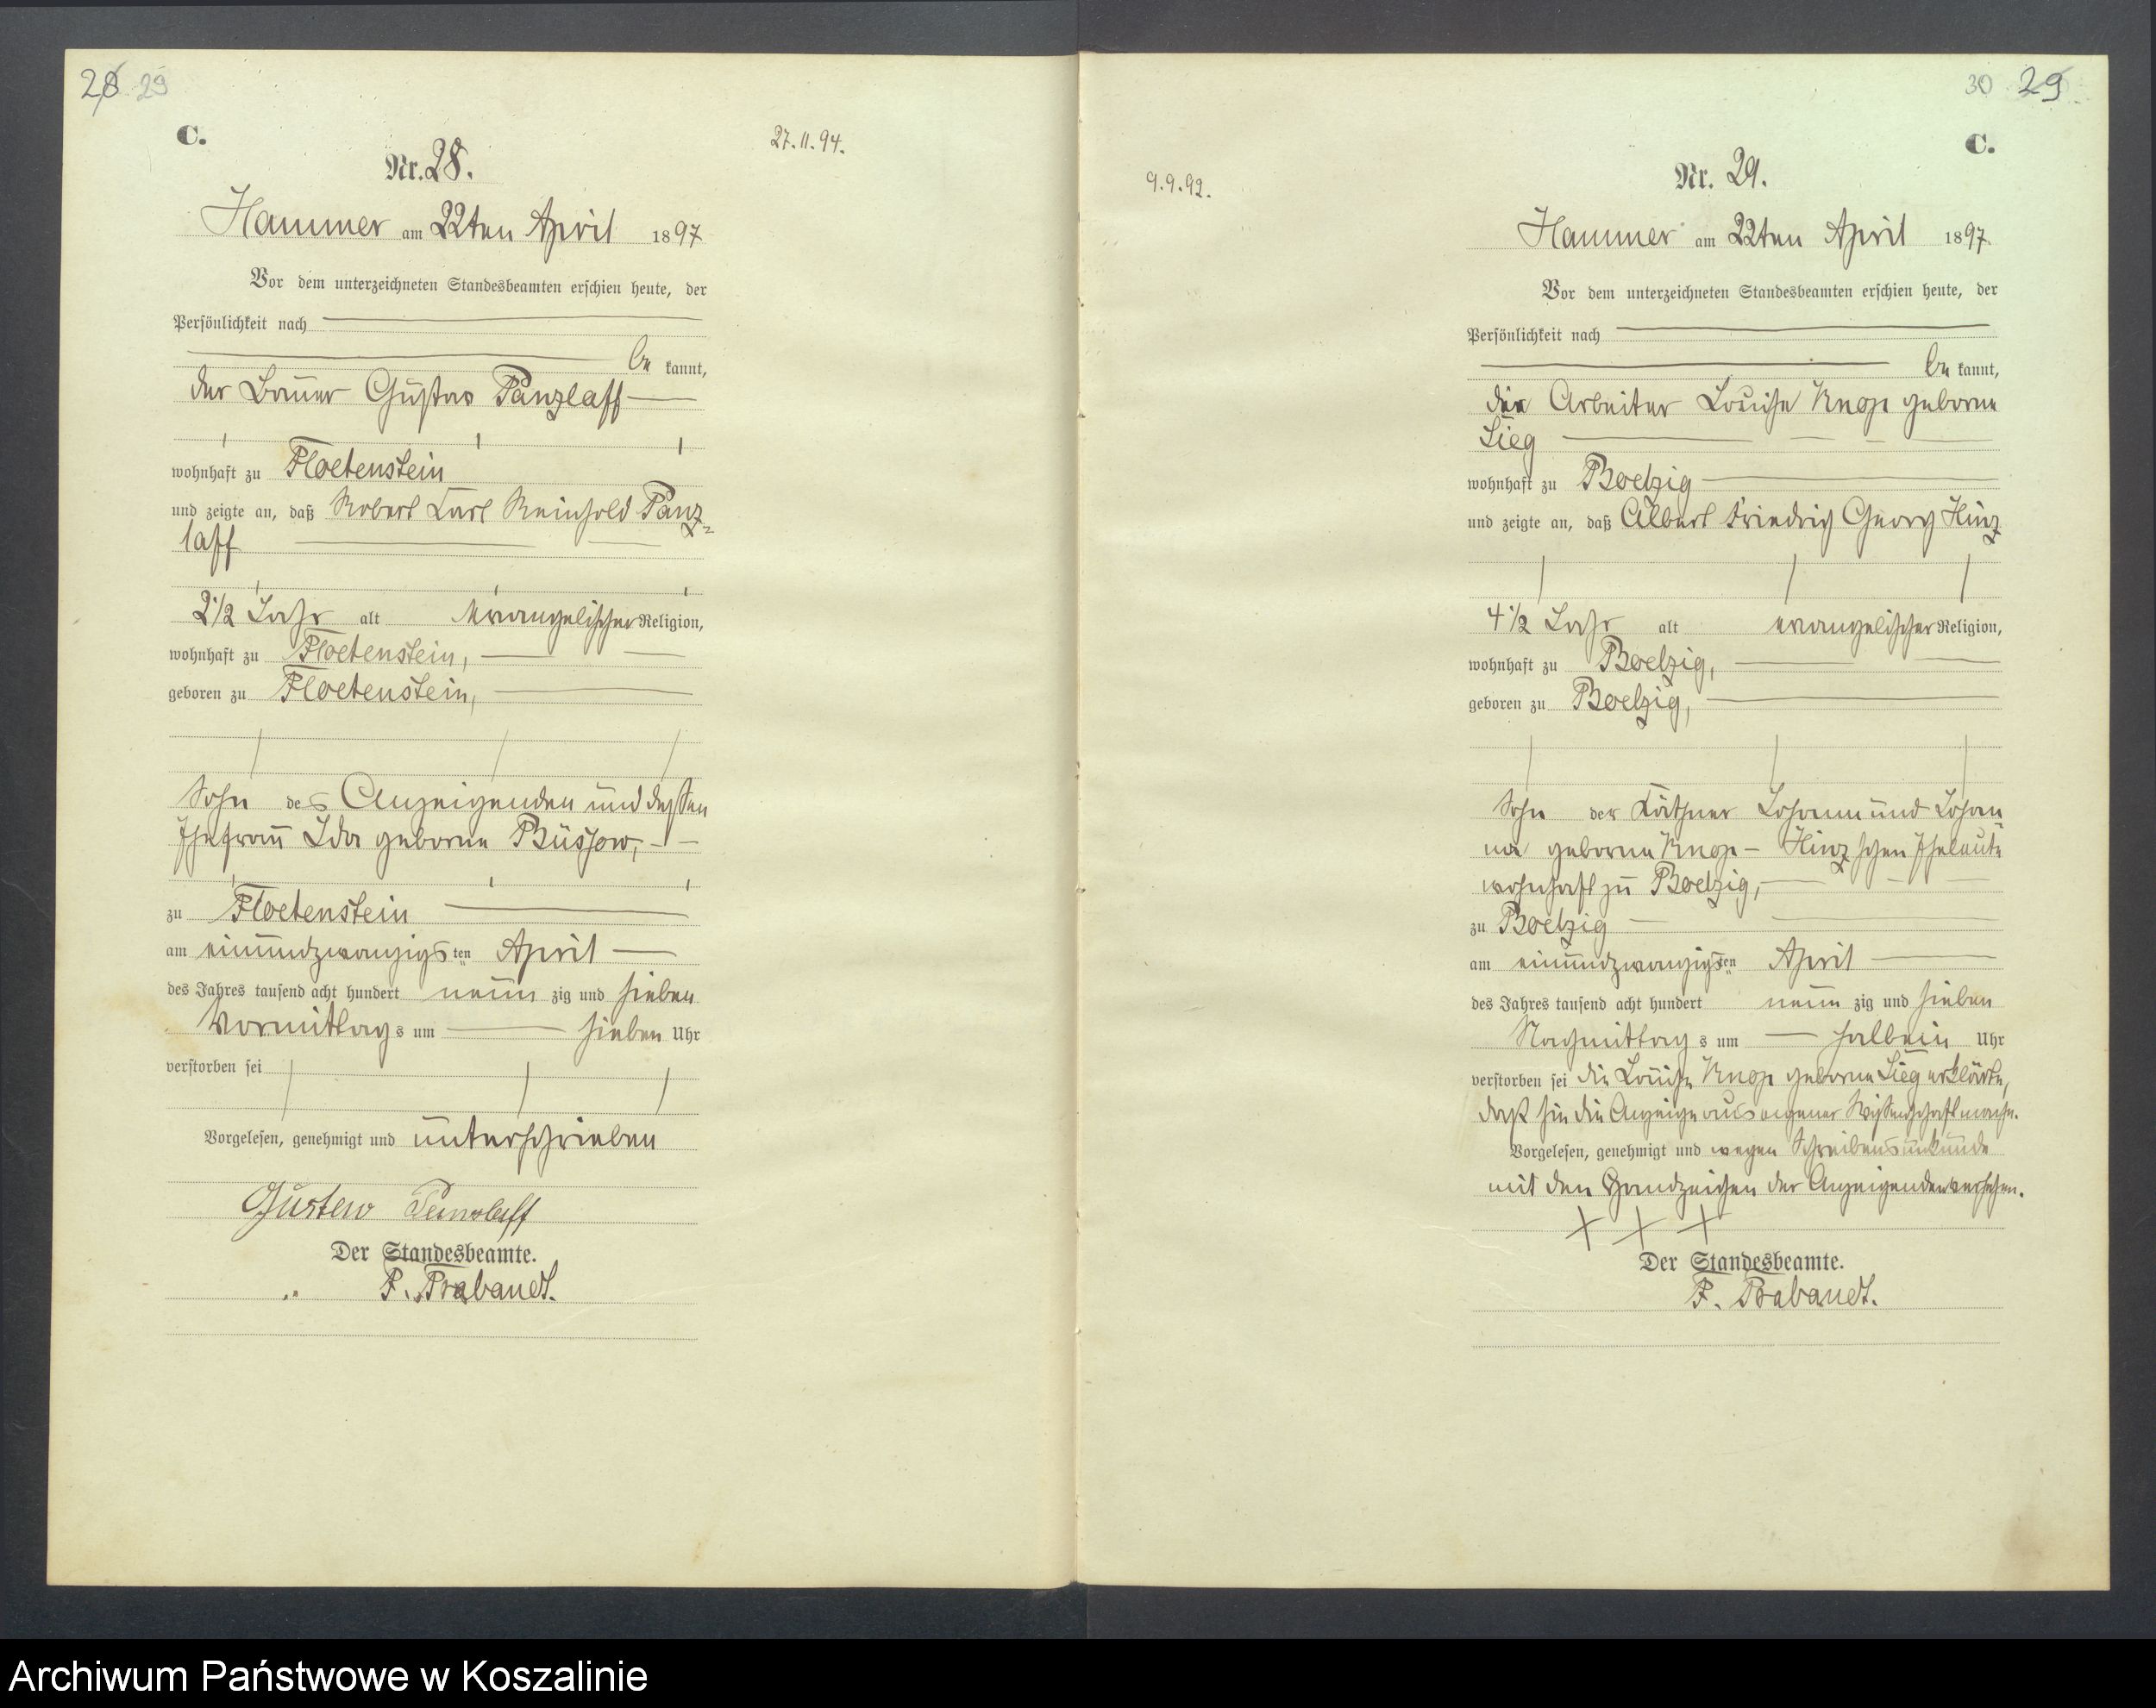 28 29
C.
27.11.94.
Nr. 28.
Hammer am 22ten April 1897
Vor dem unterzeichneten Standesbeamten erschien heute, der
Persönlichkeit nach
be kannt,
der Bauer Gustav Panzlaff
wohnhaft zu Floetenstein
und zeigte an, daß Robert Karl Reinhold Panz-
laff
2 1/2 Jahr alt evangelischer Religion,
wohnhaft zu Floetenstein,
geboren zu Floetenstein,
Sohn des Anzeigenden und dessen
Ehefrau Ida geborne Büssow,
zu Floetenstein
am einundzwanzigsten April
des Jahres tausend acht hundert neun zig und sieben
Vormittags um sieben Uhr
verstorben sei
Vorgelesen, genehmigt und unterschrieben
Gustav Panzlaff
Der Standesbeamte.
F. Brabandt.
30 29
C.
9.9.92.
Nr. 29.
Hammer am 22ten April 1897
Vor dem unterzeichneten Standesbeamten erschien heute, der
Persönlichkeit nach
be kannt,
die Arbeiter Louise Knop geborne
Sieg
wohnhaft zu Boelzig
und zeigte an, daß Albert Friedrich Georg Hinz
4 1/2 Jahr alt evangelischer Religion,
wohnhaft zu Boelzig,
geboren zu Boelzig,
Sohn der Käthner Johann und Johan
na geborne Knop - Hinz schen Eheleute
wohnhaft zu Boelzig,
zu Boelzig
am einundzwanzigsten April
des Jahres tausend acht hundert neun zig und sieben
Nachmittags um halb ein Uhr
verstorben sei die Louise Knop geborne Sieg erklärte,
daß sie die Anzeige aus eigener Wissenschaft mache.
Vorgelesen, genehmigt und wegen Schreibensunkunde
mit den Handzeichen der Anzeigenden versehen.
+ + +
Der Standesbeamte.
F. Brabandt.
Archiwum Państwowe w Koszalinie